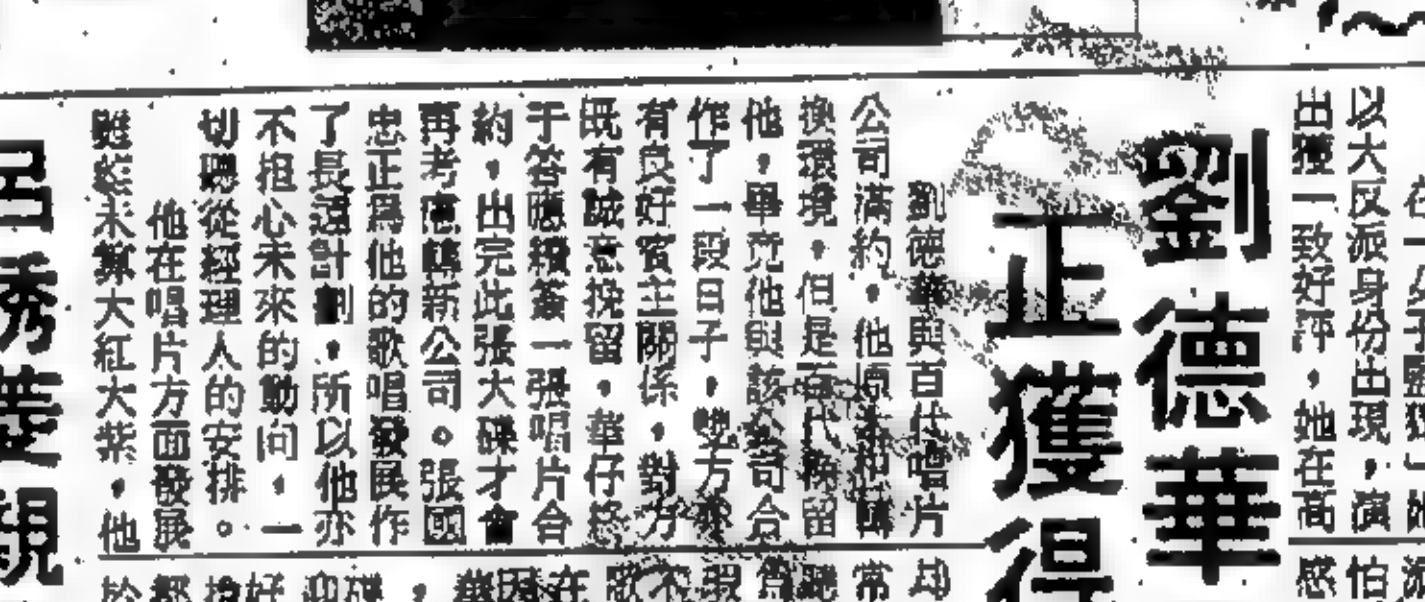 以大反派身份出現，演
出獲一致好評，她在高
劉德華
正獲得
劉德華與百代唱片
公司滿約，他原本想轉
換環境，但是百代挽留
他，畢竟他與該公司合
作了一段日子，雙方亦
有良好賓主關係，對方
既有誠意挽留，華仔終
于答應續簽一張唱片合
約，出完此張大碟才會
再考慮轉新公司。張國
忠正爲他的歌唱發展作
了長遠計劃，所以他亦
不担心未來的動向，一
切聽從經理人的安排。
他在唱片方面發展
雖然未算大紅大紫，他
呂秀